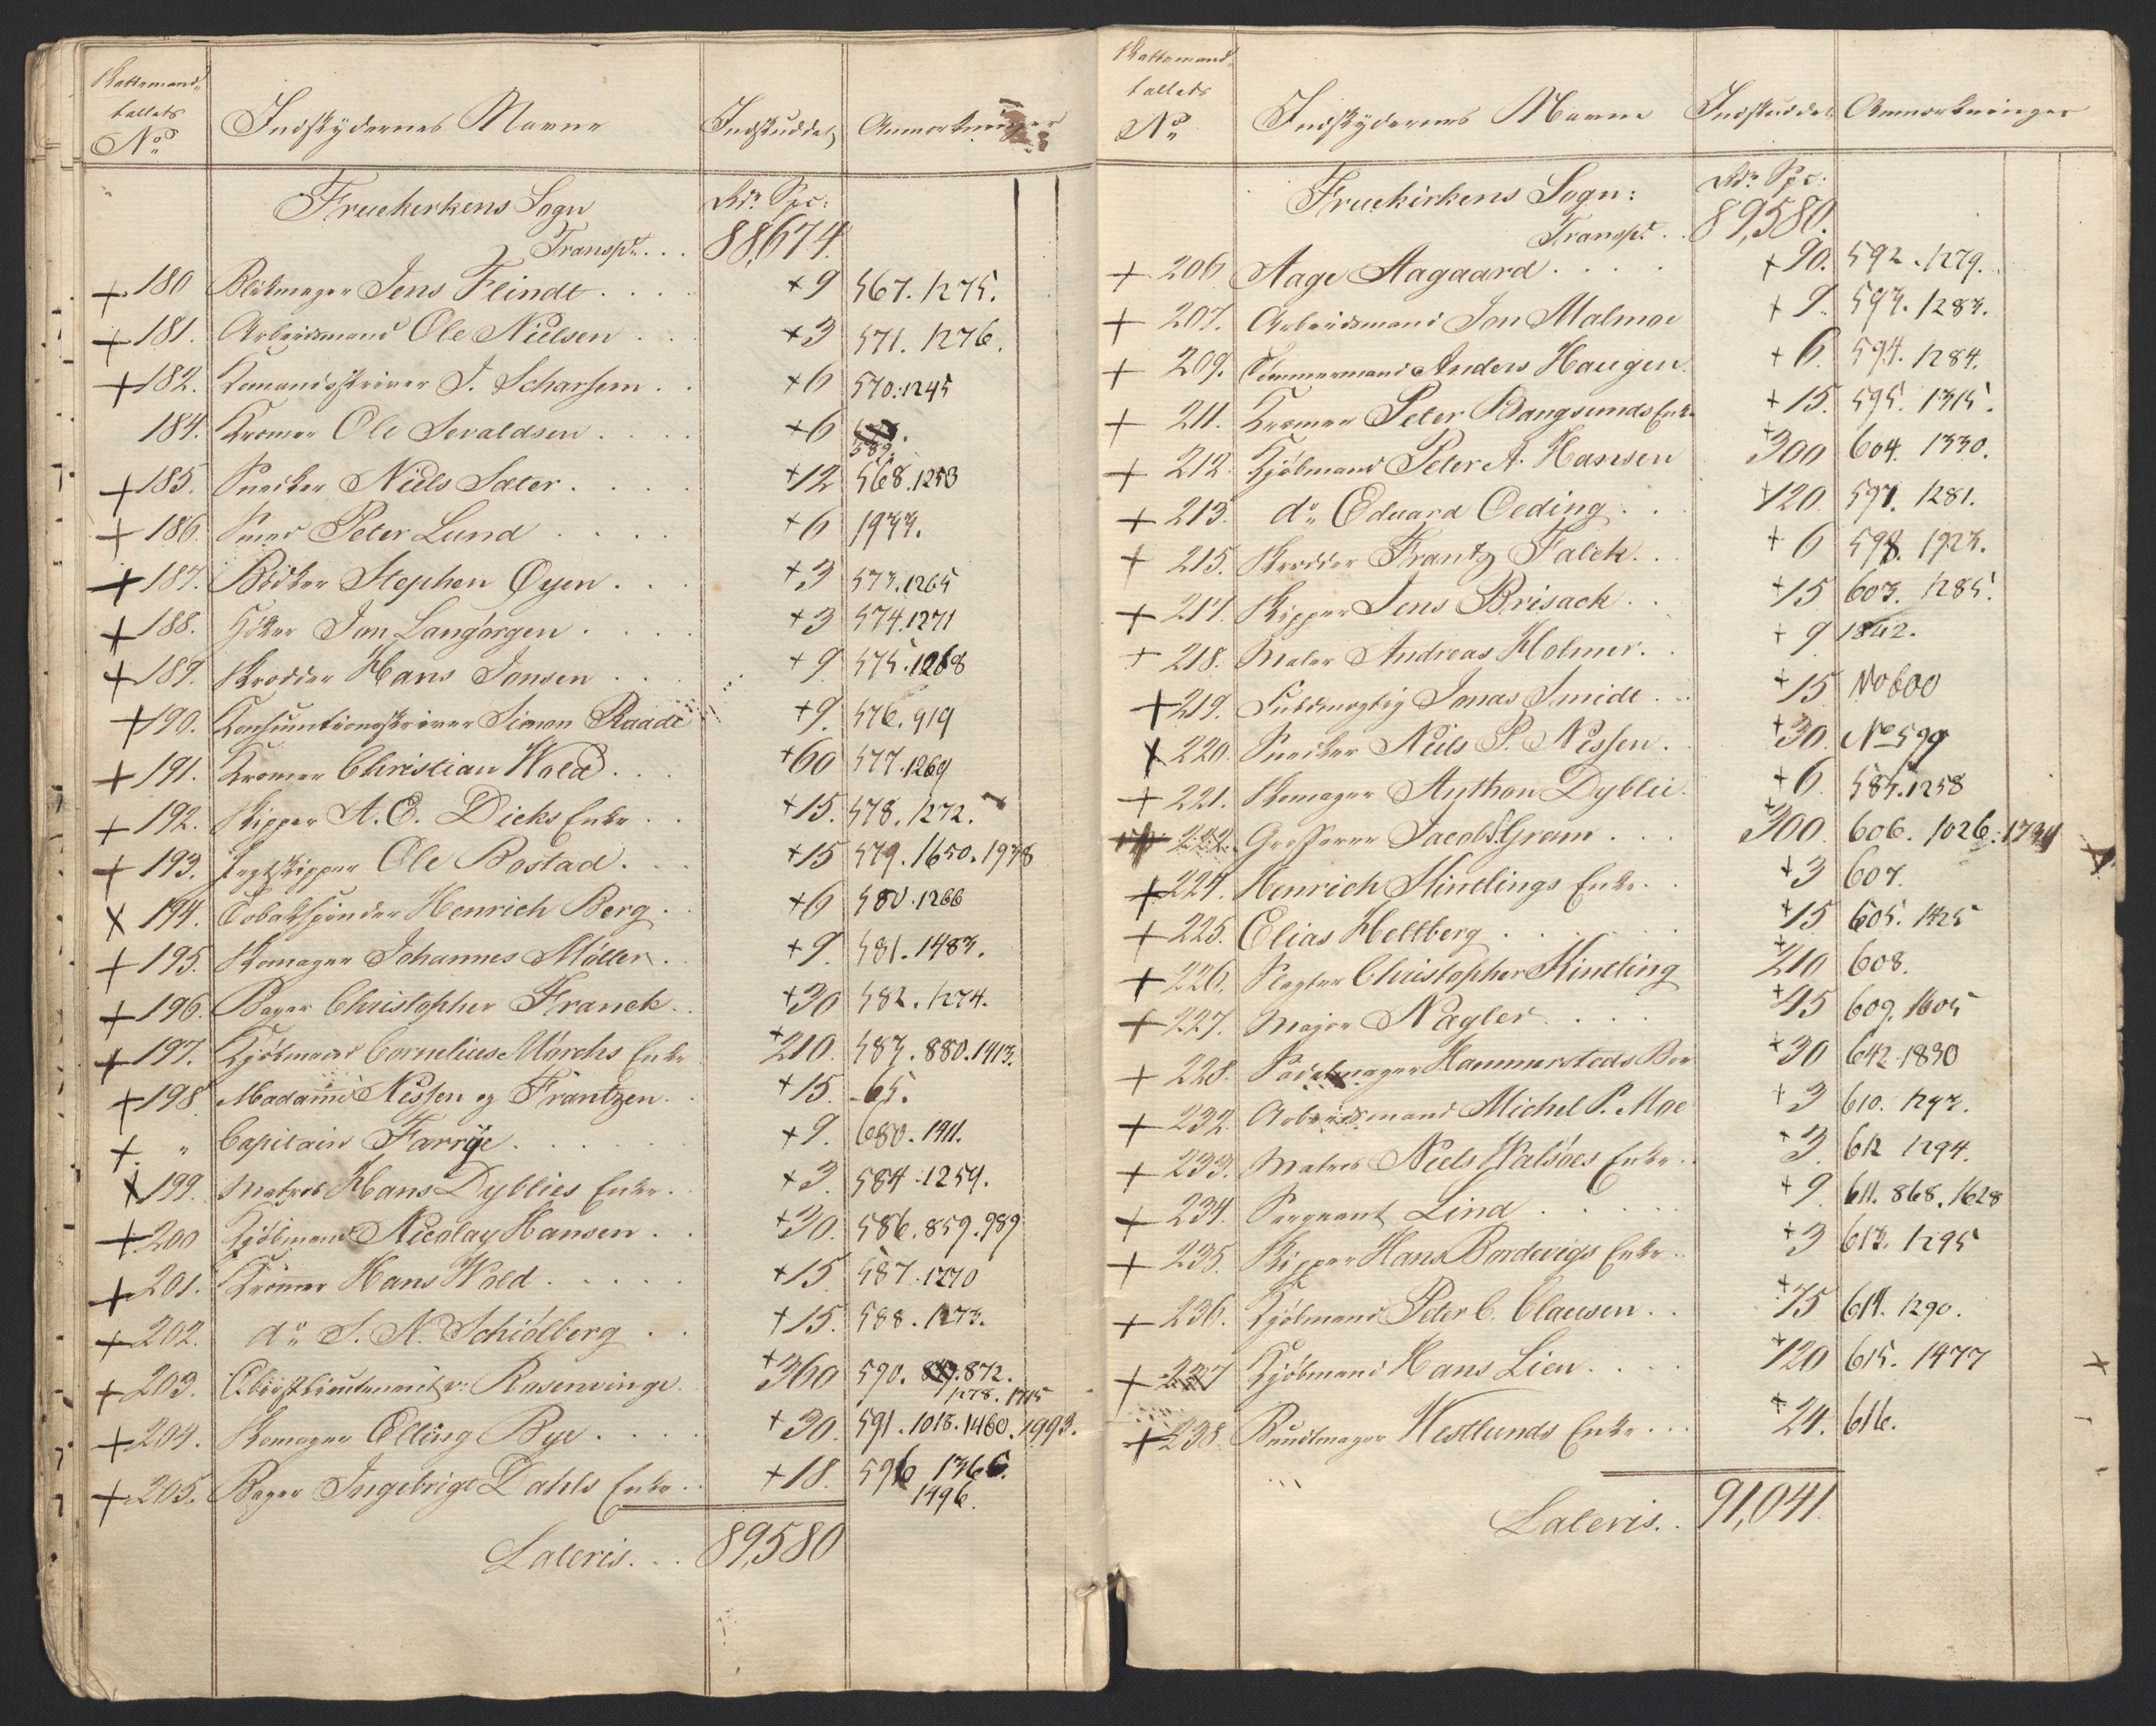 Skattemand-
tallets
No
Indskydernes Navne
Indskuddet
Anmærkninger
Fruekirkens Sogn
Rdr. Spc:
Transpt... 88,674.
+ 180 Blokmager Jens Flindt.... +9 567. 1275.
+ 181. Arbeidsmand Ole Nielsen... +3 571. 1276.
+ 182. J. Scharffem.. +6 570.1245
184. Kræmer Ole Sevaldsen.... +6
589.
+ 185. Snecker Niels Sæter.... +12 568.1253
+ 186. Smed Peter Lund.... +6 1933.
+ 187. Bødker Stephen Øyen... +3 573.1265
+ 188. Høker Jon Langørgen.... +3 574.1271
+ 189. Skrædder Hans Jonsen... +9. 575.1268
+ 190. Consumtionsskriver Simon Raade +9. 576.919
+ 191. Kræmer Christian Wold... +60 577.1269
+ 192. Skipper A. E. Dicks Enke.. +15. 578. 1272.
+ 193. Jægtskipper Ole Bostad... +15 579. 1650. 1938
X 194. Tobakspinder Henrich Berg.. +6 580.1266
+ 195. Skomager Johannes Møller.. +9. 581. 1483.
+ 196. Bager Christopher Franck.. +30 582. 1274.
+ 197. Kjøbmand Cornelius Mørchs Enke +210. 583. 880. 1413.
+ 198. Madame Nissen og Frantzen.. +15. 65.
+ " Capitain Farrye...... +9. 680. 1911.
X 199. Matros Hans Dyblies Enke.. +3. 584. 1259.
+ 200 Kjøbmand Nicolay Hansen.. +30. 586. 859. 989
+ 201. Kræmer Hans Wold..... +15. 587. 1270
+ 202. do S. N. Schiølberg.. +15. 588. 1273.
+ 203. Oberstlieutenant v: Rosenvinge. +360 590. 872.
1278. 1715
+ 204. Skomager Elling Bye.... +30. 591. 1018. 1460. 1993.
+ 205. Bager Ingebrigt Dahls Enke.. +18. 596 1366.
1496.
Lateris... 89,580
Skattemand-
tallets
No
Indskydernes Navne
Indskuddet
Anmærkninger
Fruekirkens Sogn:
Rdr. Spc:
Transpt.. 89,580.
+ 206 Aage Aagaard.... +90. 592. 1279.
+ 207. Arbeidsmand Jon Malmoe +9. 593. 1283.
+ 209. Tømmermand Anders Haugen. +6. 594. 1284.
+ 211. Kræmer Peter Bangsunds Enke +15. 595. 1315.
+ 212 Kjøbmand Peter A. Hansen +300 604. 1330.
+ 213. do Eduard Oeding.. +120. 597. 1281.
+ 215. Skrædder Frantz Falck.. +6 598. 1923.
+ 217. Skipper Jens Brisack.. +15 603. 1285.
+ 218. Maler Andreas Holmer.. +9 1842.
+ 219. Fuldmægtig Jonas Smidt.. +15 No 600
X 220. Snecker Niels P. Nissen.. +30. No 599
+ 221. Skomager Anthon Dyblie. +6. 585.1258
222. Grosserer Jacob S. Gram... +300. 606. 1026.
+ 224. Henrich Kintlings Enke.. +3 607.
+ 225. Elias Heltberg...... +15 605. 1425
+ 226. Slagter Christopher Kintling +210 608.
+ 227. Major Nagler.... +45 609. 1605
+ 228. Hammersteds Boe +30 642.1830
+ 232. Arbeidsmand Michel P. Moe +3 610. 1293.
+ 233. Matros Niels Walsøes Enke.. +3. 612 1294.
+ 234. Sergeant Lind..... +9 611. 868. 1628
+ 235. Skipper Hans Bordevigs Enke.. +3 613. 1295
+ 236. Kjøbmand Peter C. Clausen.. +75 614. 1290.
+ 237 Kjøbmand Hans Lien.... +120 615. 1477
+ 238. Buntmager Westlunds Enke... +24. 616.
Lateris.. 91,041